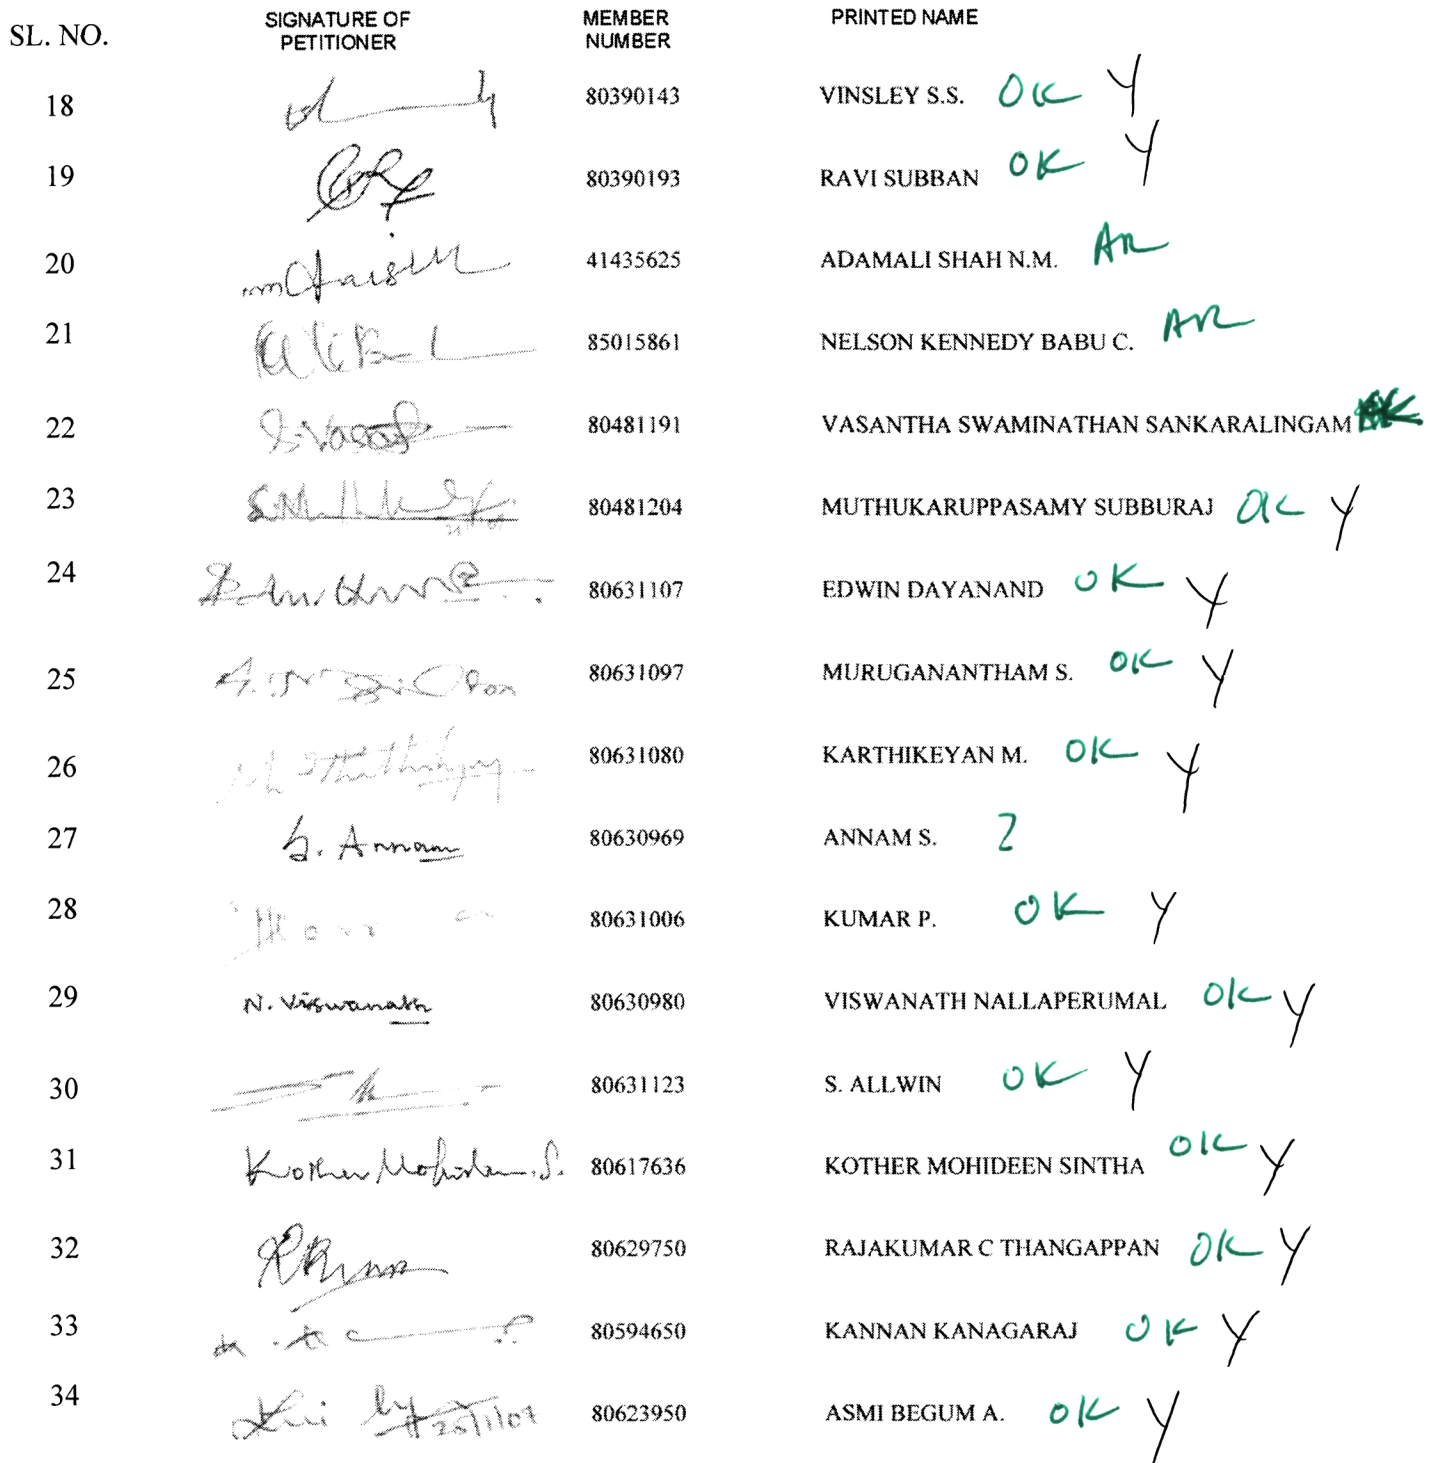 SL. NO. SIGNATURE OF PETITIONER MEMBER NUMBER PRINTED NAME
18 80390143 VINSLEY S.S. OK Y
19 80390193 RAVI SUBBAN OK Y
20 41435625 ADAMALI SHAH N.M. AR
21 85015861 NELSON KENNEDY BABU C. AR
22 80481191 VASANTHA SWAMINATHAN SANKARALINGAM
23 80481204 MUTHUKARUPPASAMY SUBBURAJ OK Y
24 80631107 EDWIN DAYANAND OK Y
25 80631097 MURUGANANTHAM S. OK Y
26 80631080 KARTHIKEYAN M. OK Y
27 S. Annam 80630969 ANNAM S. 2
28 80631006 KUMAR P. OK Y
29 N. Viswanath 80630980 VISWANATH NALLAPERUMAL OK Y
30 80631123 S. ALLWIN OK Y
31 Kother Mohideen. S. 80617636 KOTHER MOHIDEEN SINTHA OK Y
32 80629750 RAJAKUMAR C THANGAPPAN OK Y
33 80594650 KANNAN KANAGARAJ OK Y
34 25/1/07 80623950 ASMI BEGUM A. OK Y